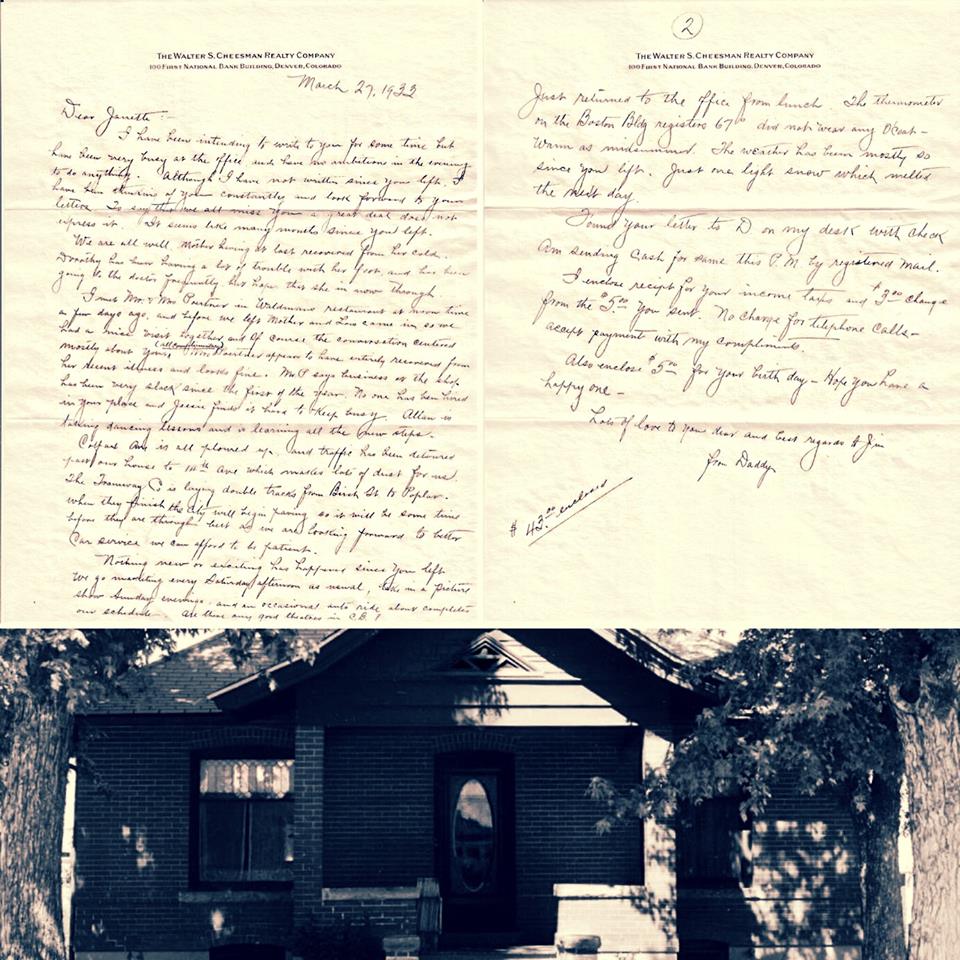 THE WALTER S. CHEESMAN REALTY COMPANY
100 FIRST NATIONAL BANK BUILDING, DENVER, COLORADO
March 27, 1932
Dear Janette:-
I have been intending to write to you for some time but
have been very busy at the office and have no ambitions in the evening
to do anything. Although I have not written since you left, I
have been thinking of you constantly and look forward to your
letters. To say that we all miss you a great deal does not
express it. It seems like many months since you left.
We are all well, Mother having at last recovered from her cold.
Dorothy has been having a lot of trouble with her foot, and has been
going to the doctor frequently. We hope that she is now through.
I met Mr. & Mrs Partner in Waldmans restaurant at noon time
a few days ago, and before we left Mother and Lois came in so we
had a nice visit together and of course the conversation centered
mostly about you. (all complimentary) Mrs Partner appears to have entirely recovered from
her recent illness and looks fine. Mr P says business at the shop
has been very slack since the first of the year. No one has been hired
in your place and Jessie finds it hard to keep busy. Allan is
taking dancing lessons and is learning all the new steps.
Colfax Ave is all plowed up, and traffic has been detoured
past our house to 14th Ave which makes lots of dust for us.
The Tramway Co is laying double tracks from Birch St to Poplar.
when they finish the City will begin paving so it will be some time
before they are through but as we are looking forward to better
Car service we can afford to be patient.
Nothing new or exciting has happened since you left.
We go marketing every Saturday afternoon as usual, take in a picture
show Sunday evenings, and an occasional auto ride about completes
our schedule. Are there any good theatres in C.B.?
2
THE WALTER S. CHEESMAN REALTY COMPANY
100 FIRST NATIONAL BANK BUILDING, DENVER, COLORADO
Just returned to the office from lunch. The thermometer
on the Boston Bldg registers 67° did not wear any O'coat-
Warm as midsummer. The weather has been mostly so
since you left. Just one light snow which melted
the next day.
Found your letter to D on my desk with check
Am sending Cash for same this P.M. by registered mail.
I enclose receipt for your income taxes and $3.00 change
from the $5.00 you sent. No charge for telephone calls-
accept payment with my compliments.
Also enclose $5.00 for your birth day - Hope you have a
happy one -
Lots of love to you dear and best regards to Jim
from Daddy
$43.00 enclosed